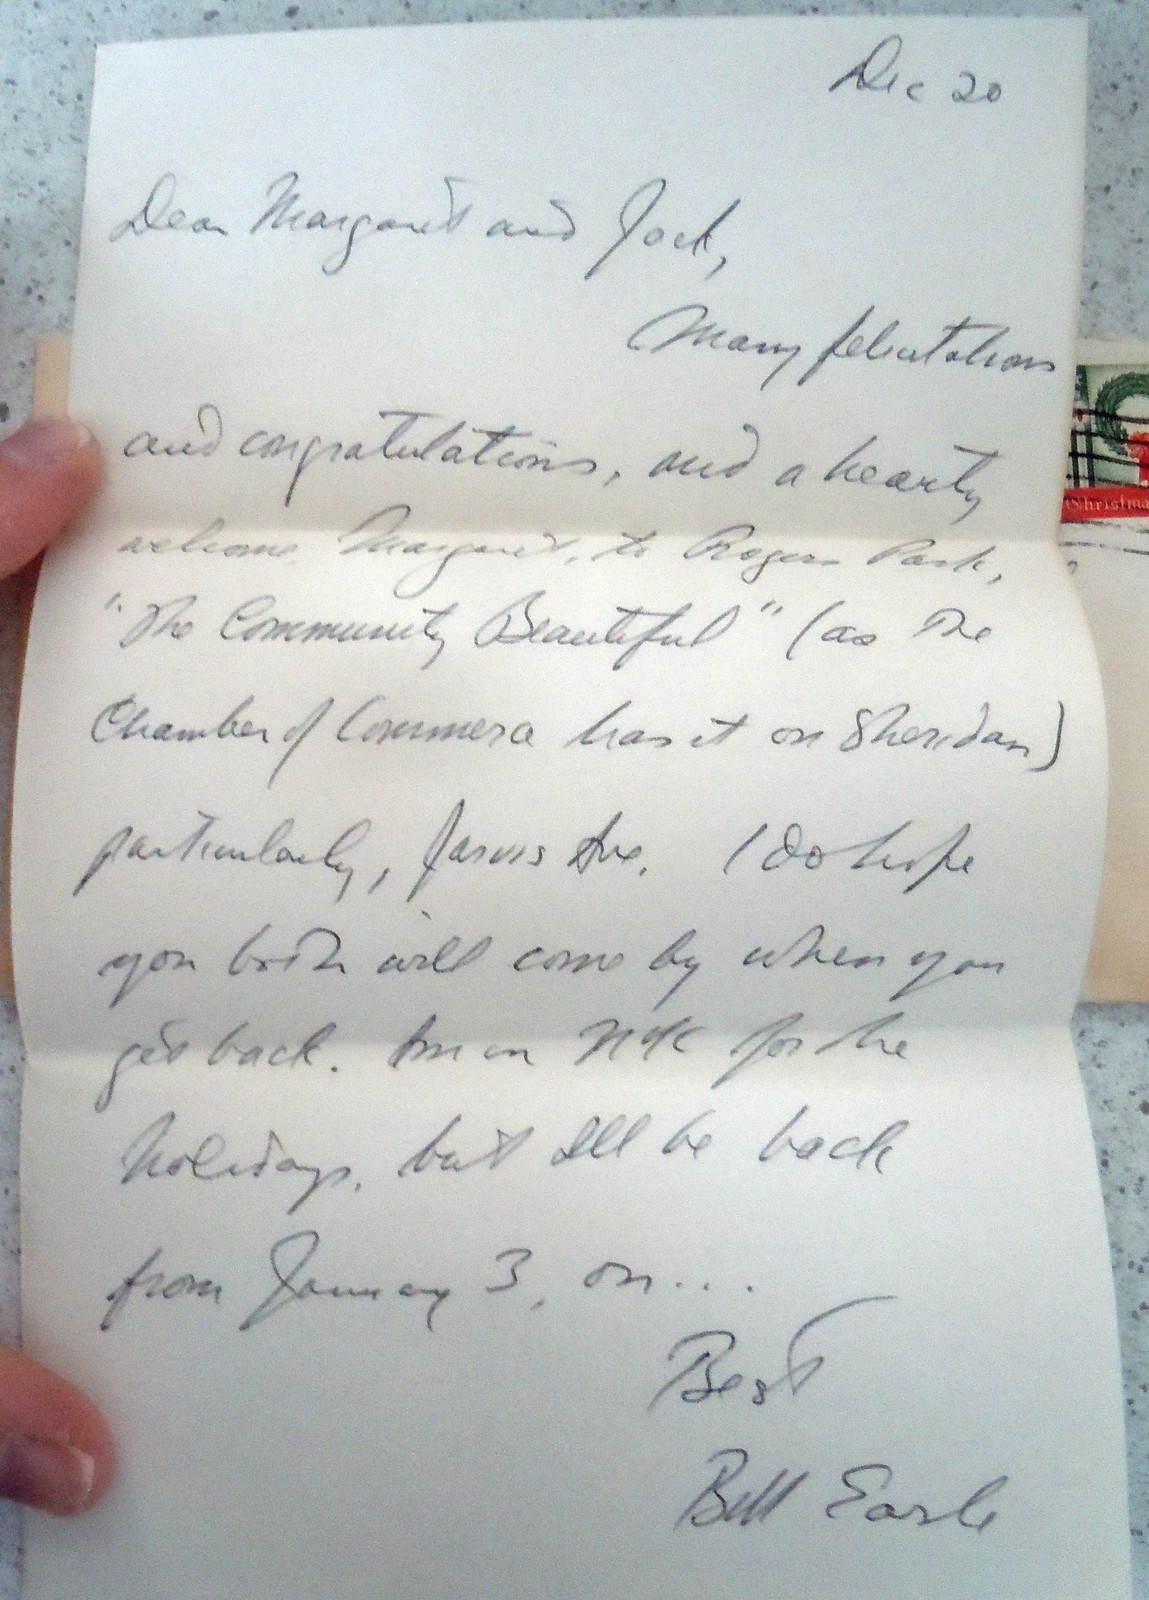 Dec 20
Dear Margaret and Jack,
Many felicitations
and congratulations, and a hearty
welcome, Margaret, to Rogers Park,
"The Community Beautiful" (as the
Chamber of Commerce has it on Sheridan)
particularly, Jarvis Ave. I do hope
you both will come by when you
get back. I'm in NYC for the
holidays, but I'll be back
from January 3, on...
Best
Bill Earle
Christmas